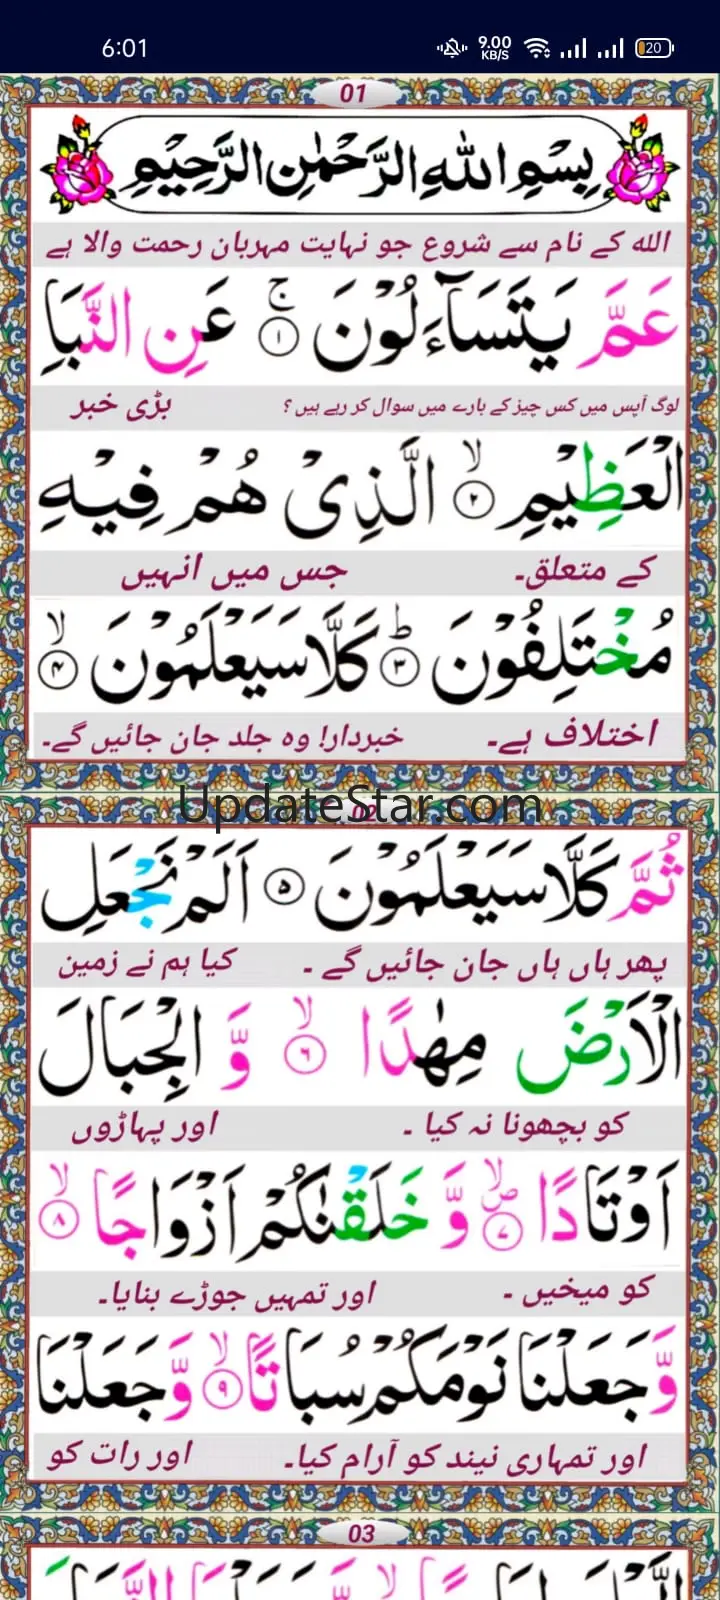 6:01 9.00 KB/S 20
01
بِسْمِ اللّٰهِ الرَّحْمٰنِ الرَّحِيْمِ
الله کے نام سے شروع جو نہایت مہربان رحمت والا ہے
عَمَّ يَتَسَآءَلُوْنَ ۚ ۱ عَنِ النَّبَاِ
لوگ آپس میں کس چیز کے بارے میں سوال کر رہے ہیں ؟ بڑی خبر
الْعَظِيْمِ ۙ ۲ الَّذِىْ هُمْ فِيْهِ
کے متعلق۔ جس میں انہیں
مُخْتَلِفُوْنَ ؕ ۳ كَلَّا سَيَعْلَمُوْنَ ۙ ۴
اختلاف ہے۔ خبردار! وہ جلد جان جائیں گے۔
UpdateStar.com
02
ثُمَّ كَلَّا سَيَعْلَمُوْنَ ۵ اَلَمْ نَجْعَلِ
پھر ہاں ہاں جان جائیں گے ۔ کیا ہم نے زمین
الْاَرْضَ مِهٰدًا ۙ ۶ وَّ الْجِبَالَ
کو بچھونا نہ کیا ۔ اور پہاڑوں
اَوْتَادًا ۪ۙ ۷ وَّ خَلَقْنٰكُمْ اَزْوَاجًا ۙ ۸
کو میخیں ۔ اور تمہیں جوڑے بنایا۔
وَّ جَعَلْنَا نَوْمَكُمْ سُبَاتًا ۙ ۹ وَّ جَعَلْنَا
اور تمہاری نیند کو آرام کیا۔ اور رات کو
03